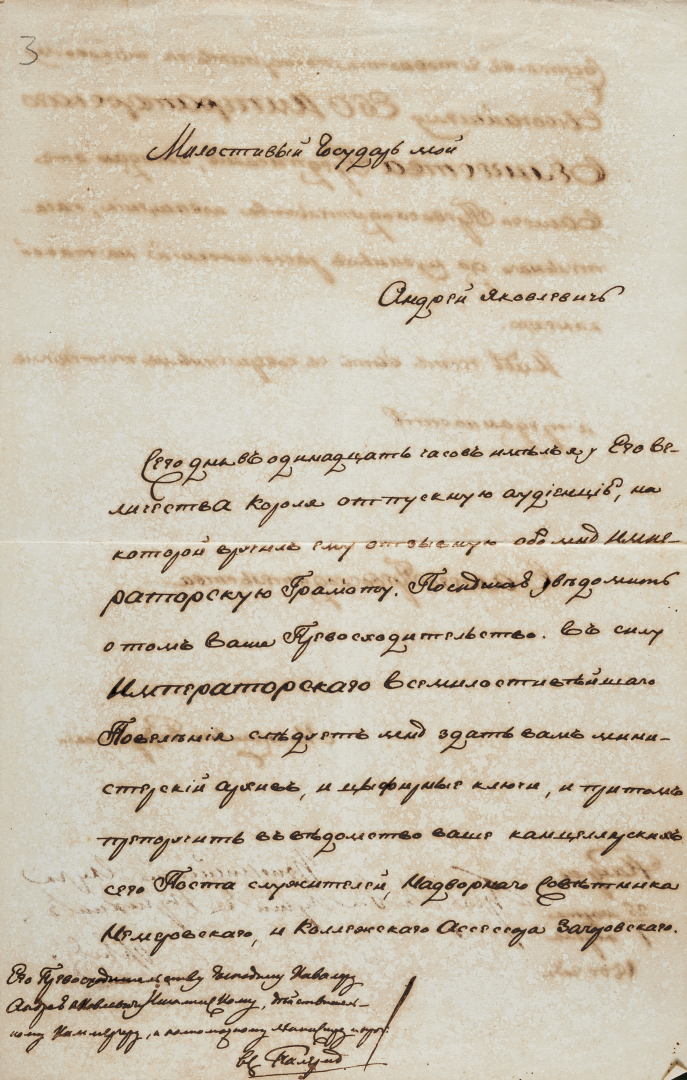 3
Милостивый Государь мой
Андрей Яковлевичь
Сего дня въ одинадцать часовъ имѣлъ я у Его Ве-
личества Короля отпускную аудіенцію, на
которой вручилъ ему отзывную обо мнѣ Импе-
раторскую Грамоту. Поспѣшаю увѣдомить
о томъ ваше Превосходительство. Въ силу
Императорскаго всемилостивѣйшаго
Повелѣнія слѣдуетъ мнѣ здать вамъ мини-
стерскій архивъ, и цыфирные ключи, и притомъ
препоручить въ вѣдомство ваше канцелярскихъ
сего Поста служителей, Надворнаго Совѣтника
и Коллежскаго Ассесора
Его Превосходительству Господину Кавалеру
Андрею Яковлевичу Италинскому, дѣйствитель-
ному Каммергеру, и Полномочному Министру и проч:
въ